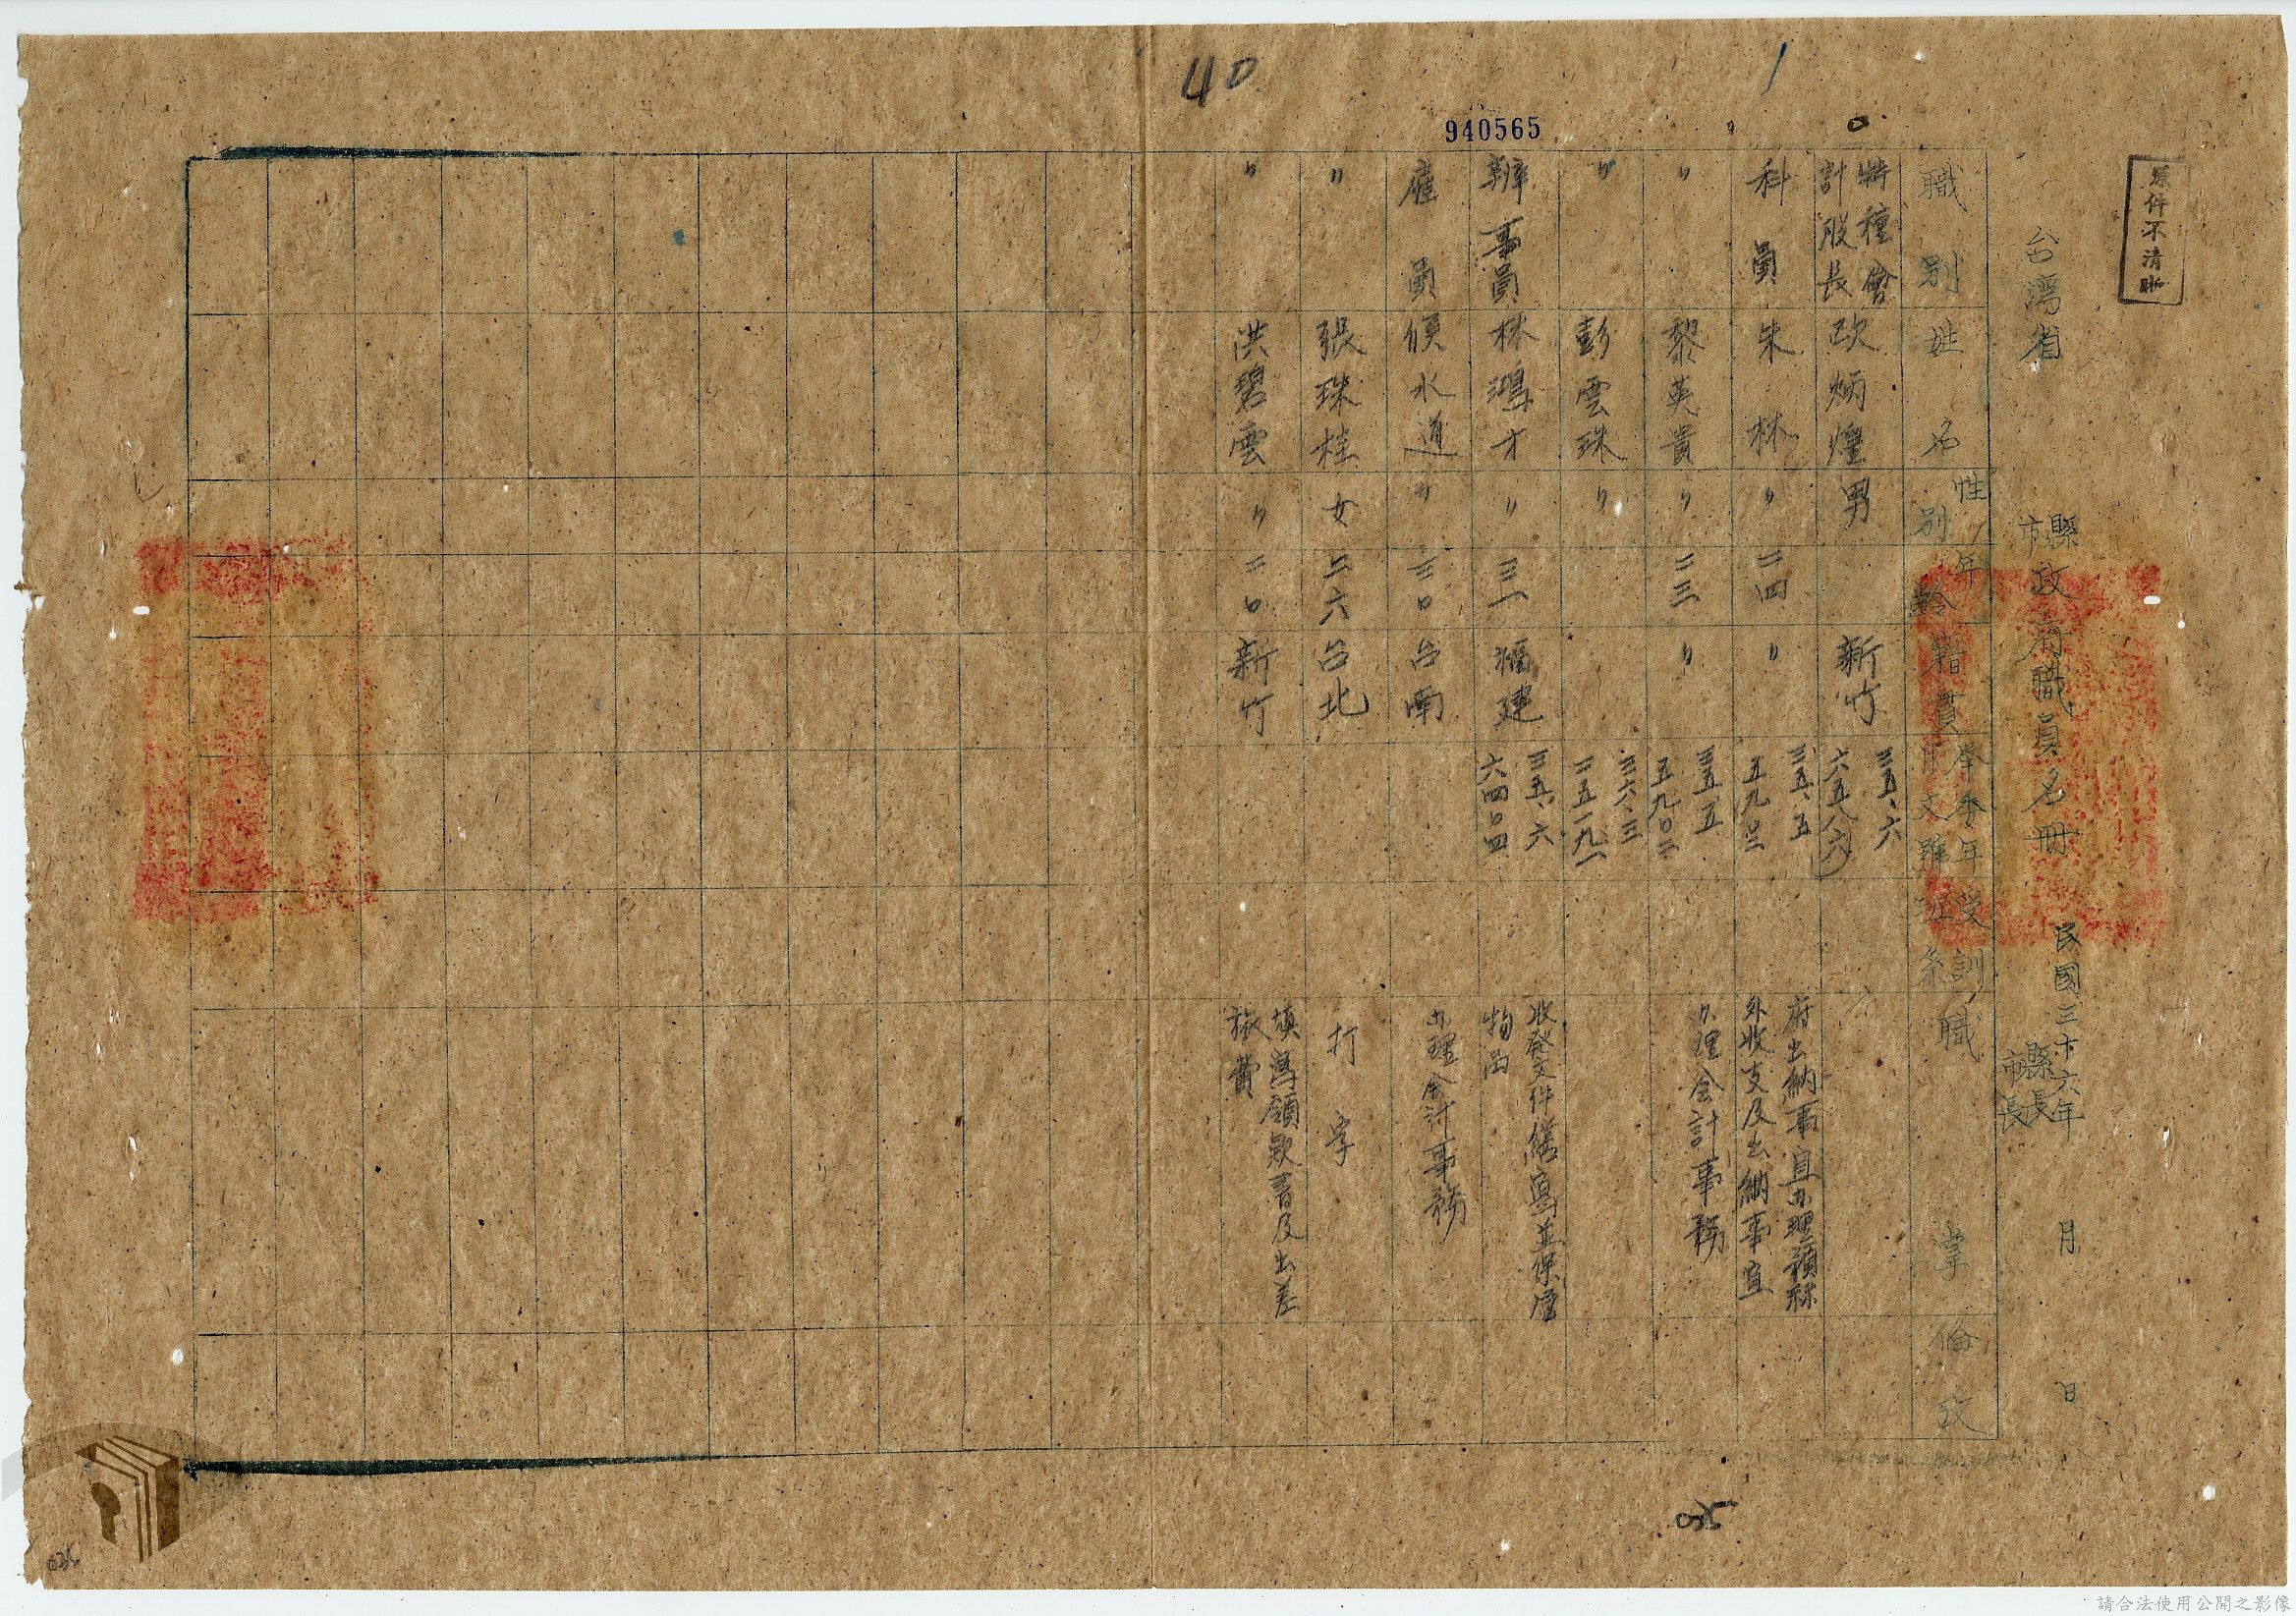 原件不清晰
台湾省 縣市政府職員名冊 民國三十六年 月 日
縣長
市長
職別 姓名 性別 年齡 籍貫 奉委年月文號 受訓班系 職掌 備攷
特種會計股長 欧炳煌 男 新竹 三五、六 六五八六
科員 朱林 〃 二四 〃 三五、五 府出納事宜办理預稼外收支及出納事宜
〃 黎英貴 〃 二三 〃 三五五 五九〇二 办理会計事務
〃 彭雲珠 〃 三六、三 二五一九一
辦事員 林鴻才 〃 三一 福建 三五、六 六四〇四 收發文件繕寫並保管物品
雇員 侯水道 〃 三〇 台南 办理会計事務
〃 張珠桂 女 二六 台北 打字
〃 洪碧雲 〃 二〇 新竹 填寫領款書及出差旅費
40
940565
1
請合法使用公開之影像